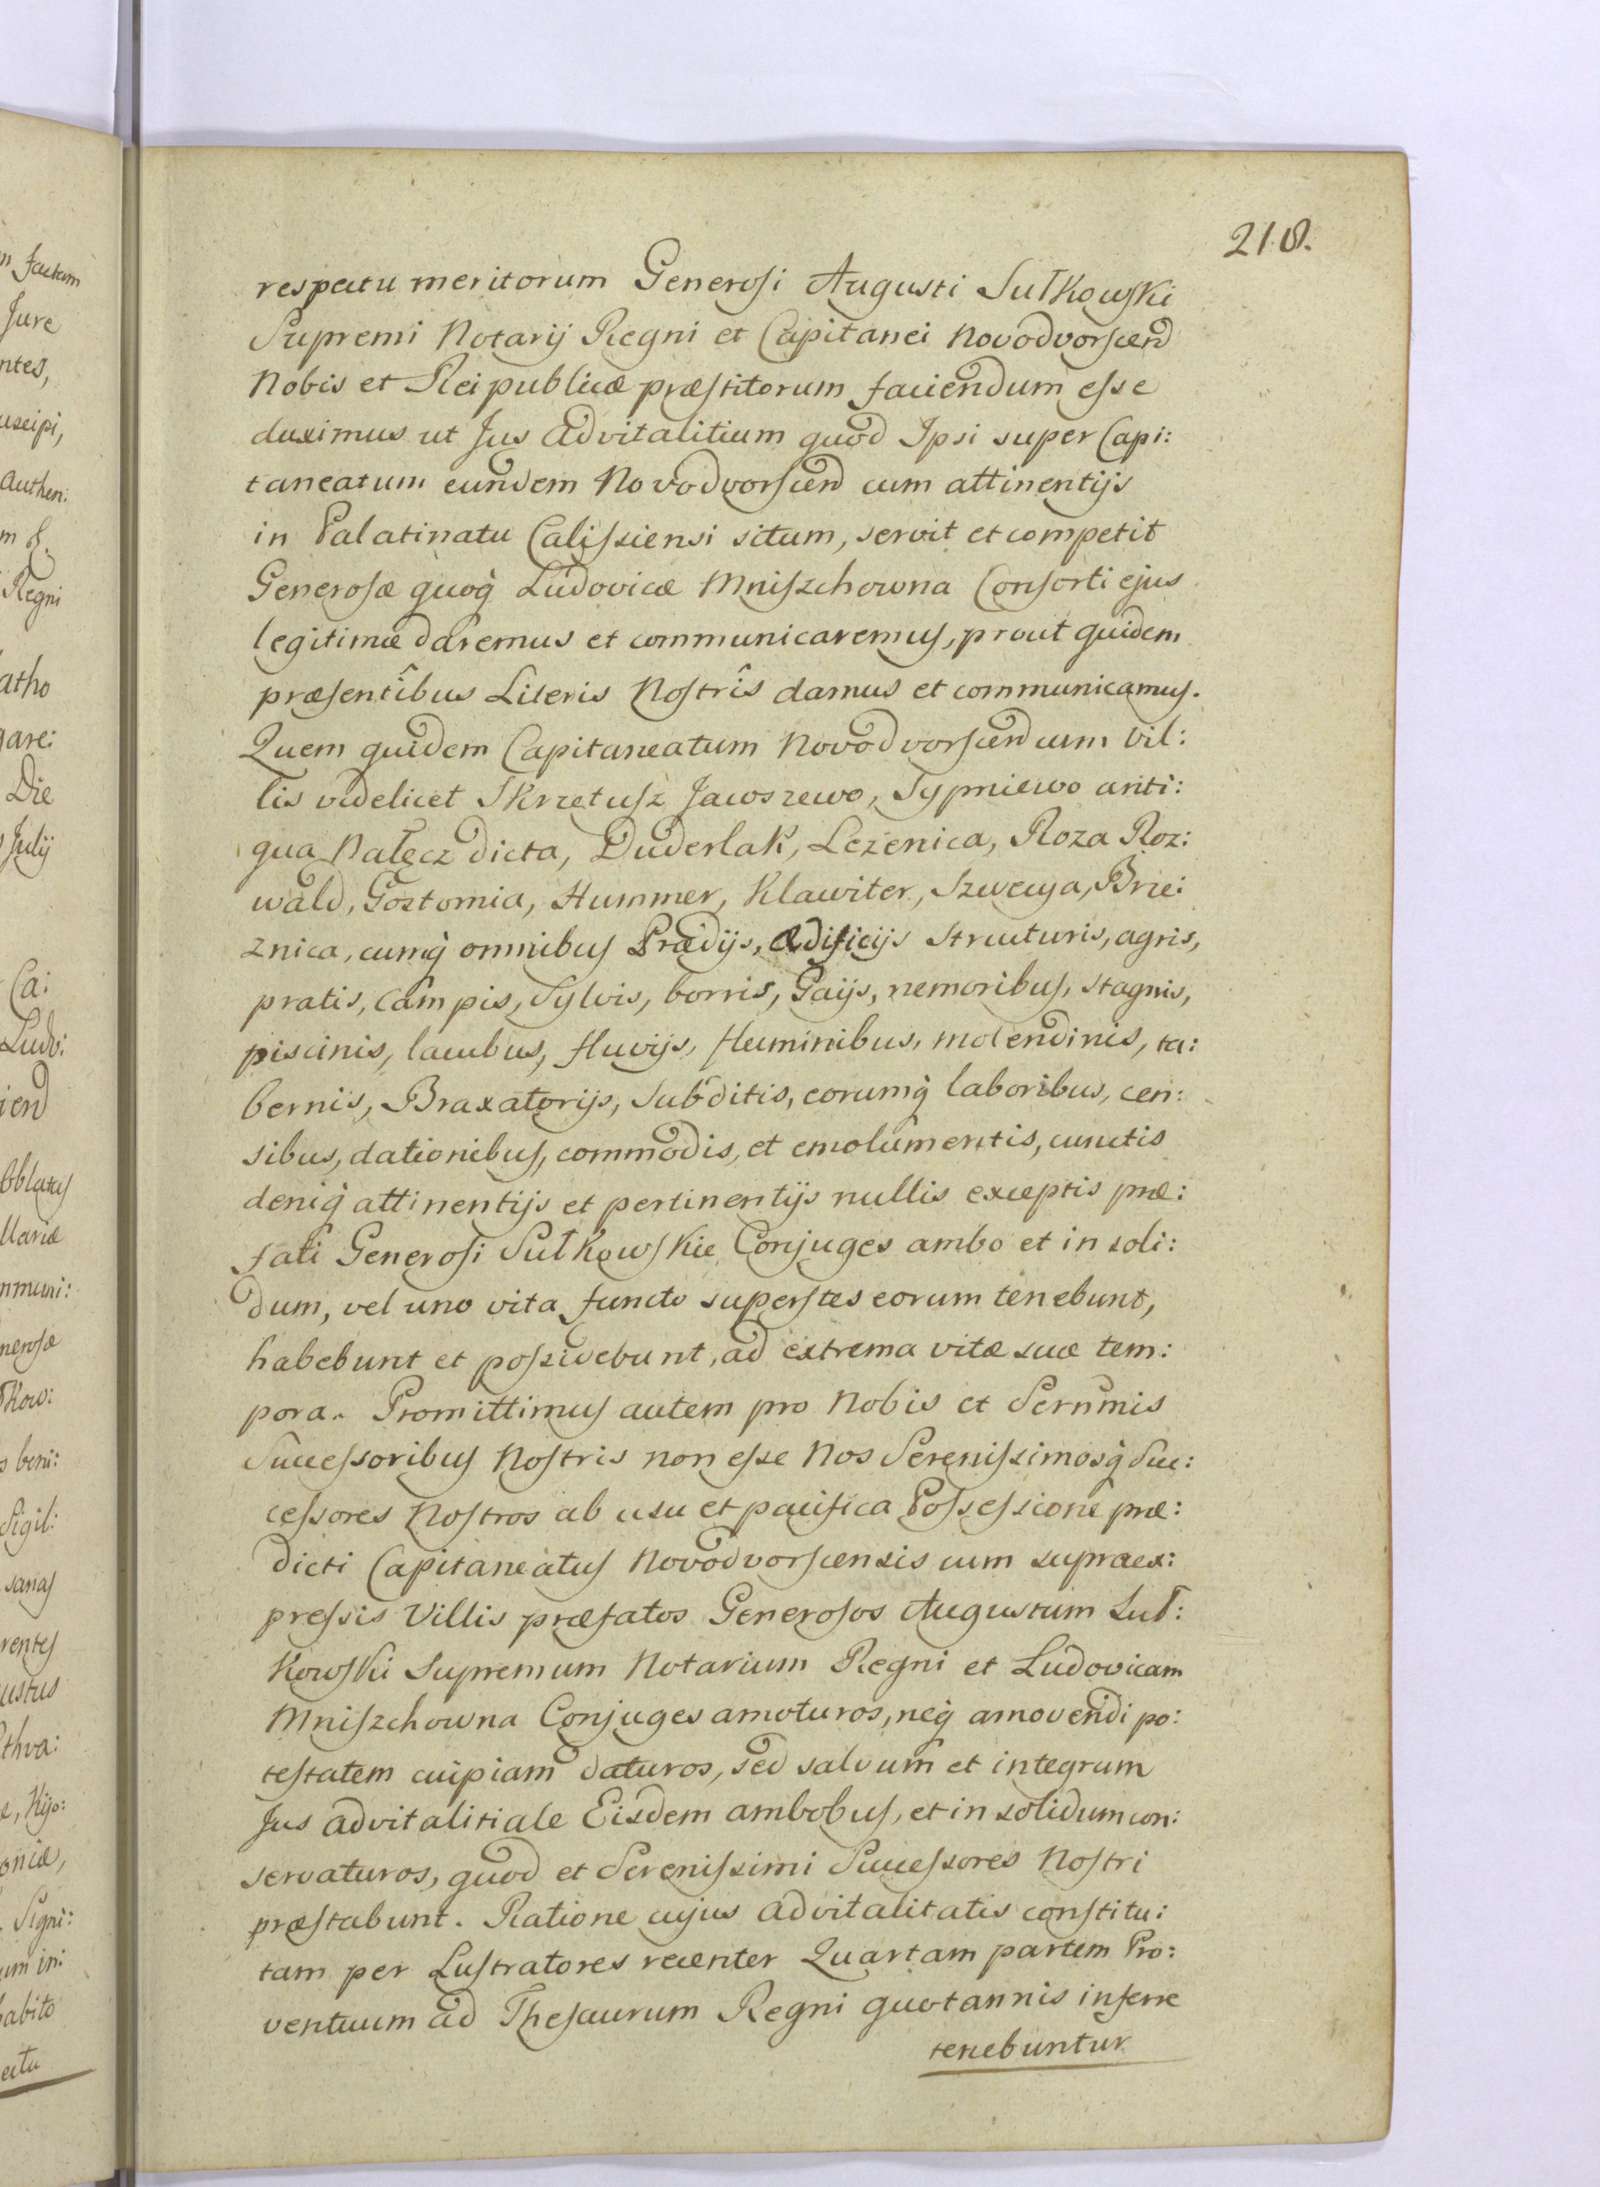 218.
respectu meritorum Generosi Augusti Sułkowski
Supremi Notarij Regni et Capitanei Novodvorscen
Nobis et Reipublicæ præstitorum faciendum esse
duximus ut Jus Advitalitium quod Ipsi super Capi:
taneatum eundem Novodvorscen cum attinentijs
in Palatinatu Calissiensi situm, servit et competit
Generosæ quoq̀ Ludovicæ Mniszchowna Consorti ejus
legitimæ daremus et communicaremus, prout quidem
præsentibus Literis Nostris damus et communicamus.
Quem quidem Capitaneatum Novodvorscen cum Vil:
lis videlicet Skrzetusz Jawoszewo, Sypniewo anti:
qua Nałęcz dicta, Duderlak, Lezenica, Roza Roz:
wald, Gostomia, Hummer, Klawiter, Szwecya, Brze:
znica, cumq̀ omnibus Prædijs, ædificijs structuris, agris,
pratis, campis, Sylvis, borris, Gaijs, nemoribus, stagnis,
piscinis, lacubus, fluvijs, fluminibus, molendinis, ta:
bernis, Braxatorijs, subditis, eorumq̀ laboribus, cen:
sibus, dationibus, commodis, et emolumentis, cunctis
deniq̀ attinentijs et pertinentijs nullis exceptis præ:
fati Generosi Sułkowskie Conjuges ambo et in soli:
dum, vel uno vita functo superstes eorum tenebunt,
habebunt et possidebunt, ad extrema vitæ suæ tem:
pora. Promittimus autem pro Nobis et Sernmis
Successoribus Nostris non esse Nos Serenissimosq̀ Suc:
cessores Nostros ab usu et pacifica Possessione præ:
dicti Capitaneatus Novodvorscensis cum supraex:
pressis Villis præfatos Generosos Augustum Suł:
kowski Supremum Notarium Regni et Ludovicam
Mniszchowna Conjuges amoturos, neq̀ amovendi po:
testatem cuipiam daturos, sed salvum et integrum
Jus advitalitiale Eisdem ambobus, et in solidum con:
servaturos, quod et Serenissimi Successores Nostri
præstabunt. Ratione cujus advitalitatis constitu:
tam per Lustratores recenter Quartam partem Pro:
ventuum ad Thesaurum Regni quotannis inferre
tenebuntur